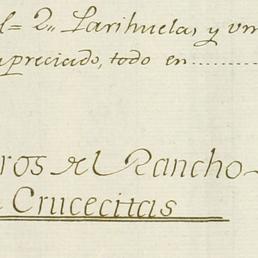 l= 2,, Parihuelas, y un
preciado, todo en..........
ros del Rancho
Crucecitas